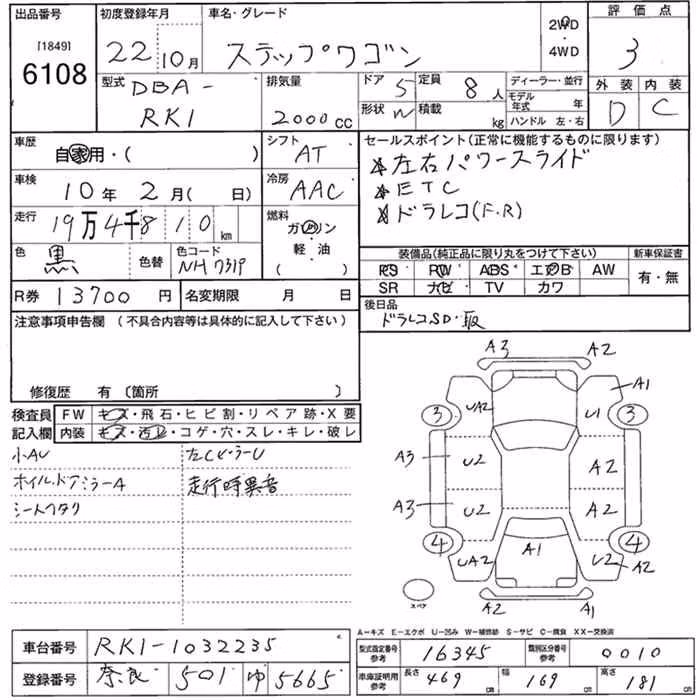 出品番号 初度登録年月 車名・グレード 評価点
[1849] 6108 22 10月 ステップワゴン 2WD ・ 4WD 3
型式 DBA- RK1 排気量 2000 cc ドア 5 定員 8 人 ディーラー・並行 外装 内装
形状 W 積載 kg モデル年式 年 ハンドル 左・右 D C
車歴 自家用・( ) シフト AT セールスポイント(正常に機能するものに限ります)
左右パワースライド
ETC
ドラレコ(F.R)
車検 10年 2月( 日) 冷房 AAC
走行 19万4千810 km 燃料 ガソリン 軽・油 ( )
色 黒 色替 色コード NH731P
装備品(純正品に限り丸をつけて下さい) 新車保証書
PS PW ABS エアB AW 有・無
SR ナビ TV カワ
R券 13700 円 名変期限 月 日 後日品
ドラレコSD・取
注意事項申告欄 (不具合内容等は具体的に記入して下さい)
修復歴 有 (箇所 )
検査員 FW キズ・飛石・ヒビ割・リペア跡・X要
記入欄 内装 キズ・汚レ・コゲ・穴・スレ・キレ・破レ
小AU
ホイル.ドアミラーA 走行時異音
シートヘタリ
A3 A2
A1
UA2 U1
3 3
A3 U2 A2
A3 U2 A2
4 4
UA2 A1 U2 A2
スペア A2 A1
A-キズ E-エクボ U-凹み W-補修跡 S-サビ C-腐食 XX-交換済
車台番号 RK1-1032235
登録番号 奈良 501 ゆ 5665
型式指定番号 参考 16345 類別区分番号 参考 0010
車庫証明用 参考 長さ 469 cm 幅 169 cm 高さ 181 cm